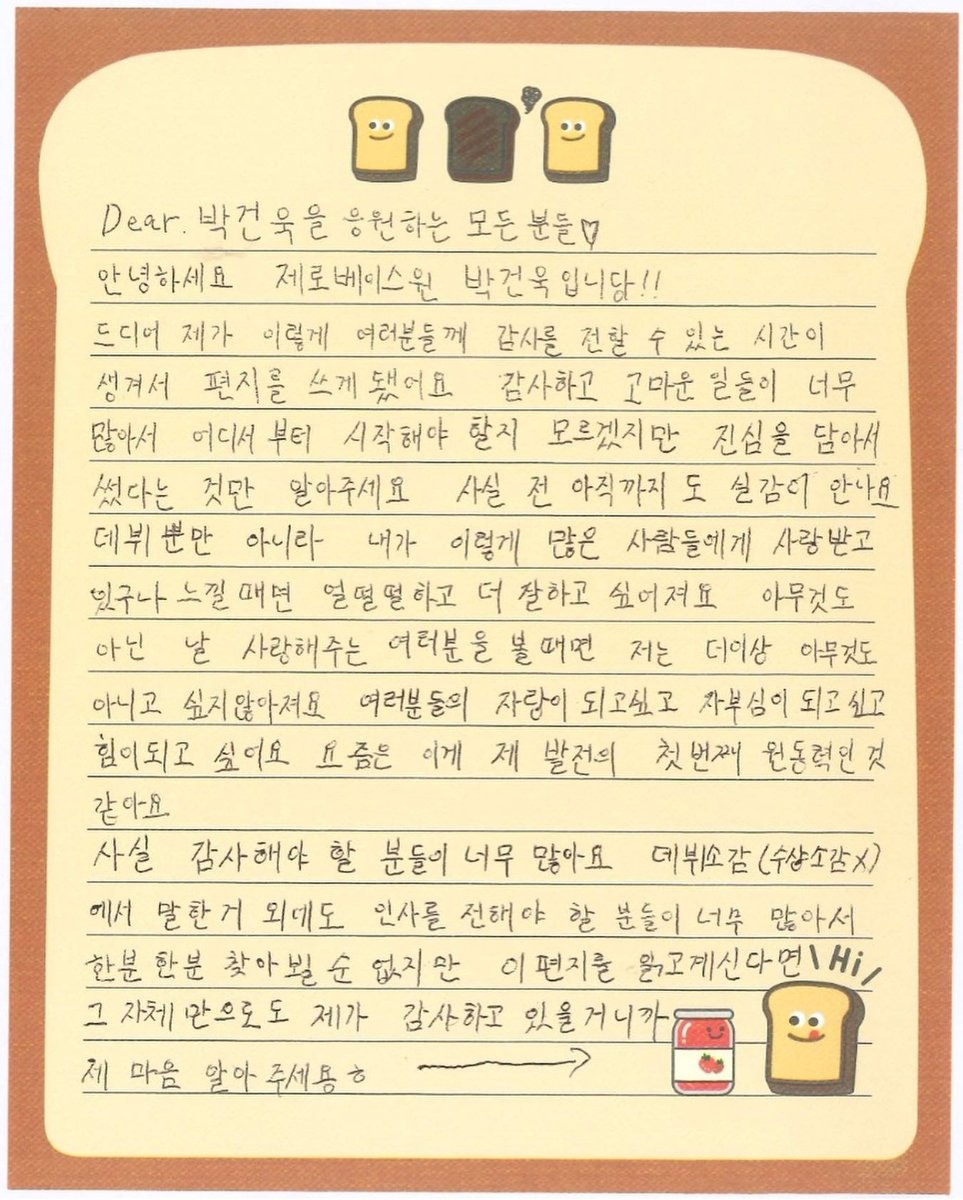 Dear. 박건욱을 응원하는 모든분들♡
안녕하세요 제로베이스원 박건욱입니당!!
드디어 제가 이렇게 여러분들께 감사를 전할 수 있는 시간이
생겨서 편지를 쓰게 됐어요 감사하고 고마운 일들이 너무
많아서 어디서 부터 시작해야 할지 모르겠지만 진심을 담아서
썼다는 것만 알아주세요 사실 전 아직까지 도 실감이 안나요
데뷔 뿐만 아니라 내가 이렇게 많은 사람들에게 사랑받고
있구나 느낄 때면 얼떨떨하고 더 잘하고 싶어져요 아무것도
아닌 날 사랑해주는 여러분을 볼 때면 저는 더이상 아무것도
아니고 싶지않아져요 여러분들의 자랑이 되고싶고 자부심이 되고싶고
힘이되고 싶어요 요즘은 이게 제 발전의 첫번째 원동력인것
같아요
사실 감사해야 할 분들이 너무 많아요 데뷔소감(수상소감X)
에서 말한거 외에도 인사를 전해야 할 분들이 너무 많아서
한분한분 찾아뵐 순 없지만 이 편지를 읽고계신다면
Hi
그 자체만으로도 제가 감사하고 있을거니까
제 마음 알아 주세용ㅎ